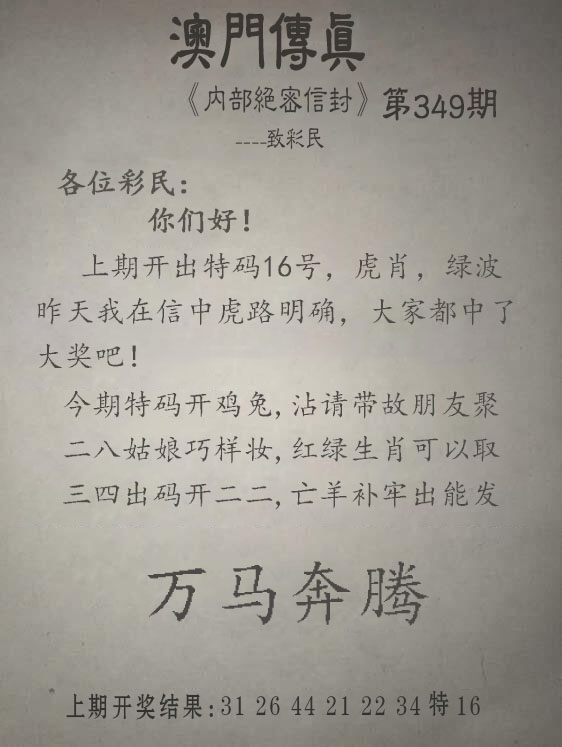 澳門傳眞
《内部絕密信封》第349期
----致彩民
各位彩民：
你们好！
上期开出特码16号，虎肖，绿波
昨天我在信中虎路明确，大家都中了
大奖吧！
今期特码开鸡兔,沾请带故朋友聚
二八姑娘巧样妆,红绿生肖可以取
三四出码开二二,亡羊补牢出能发
万马奔腾
上期开奖结果:31 26 44 21 22 34 特 16